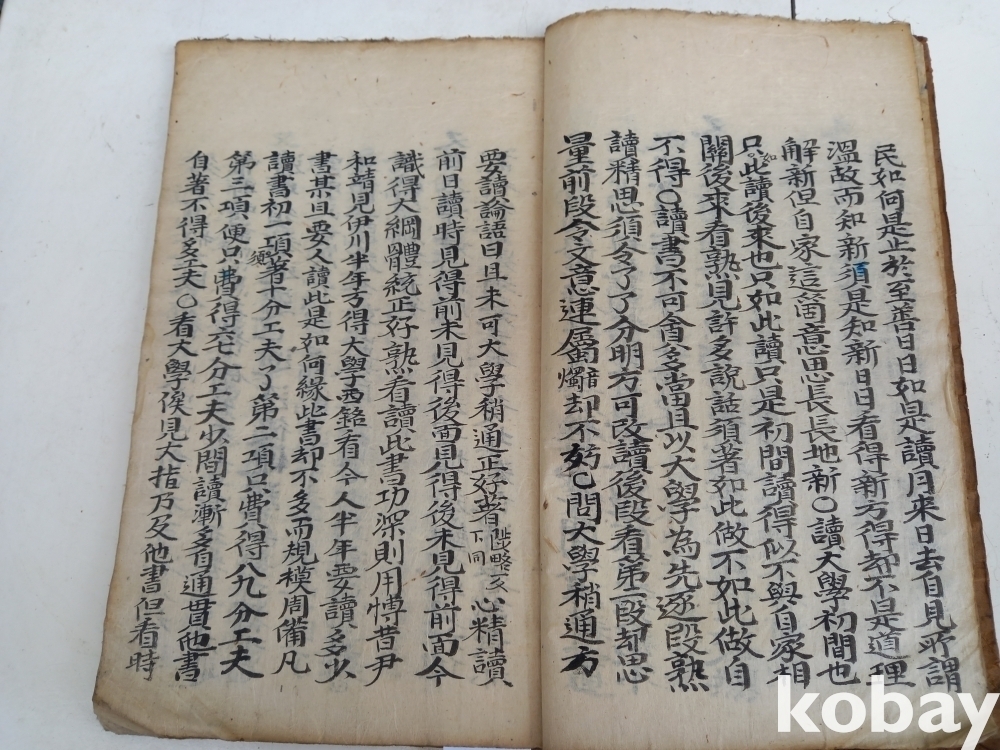 民如何是止於至善日日如是讀月來日去自見所謂
溫故而知新須是知新日日看得新方得却不是道理
解新但自家這箇意思長長地新〇讀大學初間也
只如此讀後來也只如此讀只是初間讀得似不與自家相
關後來看熟見許多說話須著如此做不如此做自
不得〇讀書不可貪多當且以大學為先逐段熟
讀精思須令了了分明方可改讀後段看第二段却思
量前段令文意連屬音燭却不妨已問大學稍通方
要讀論語曰且未可大學稍通正好著心精讀
前日讀時見得前未見得後面見得後未見得前面今
識得大綱體統正好熟看讀此書功深則用博昔尹
和靖見伊川半年方得大學西銘看今人半年要讀多少
書某且要人讀此是如何緣此書却不多而規模周備凡
讀書初一項須著十分工夫了第二項只費得八九分工夫
第三項便只費得六七分工夫少間讀漸多自通貫他書
自著不得多工夫〇看大學俟見大指乃及他書但看時
kobay